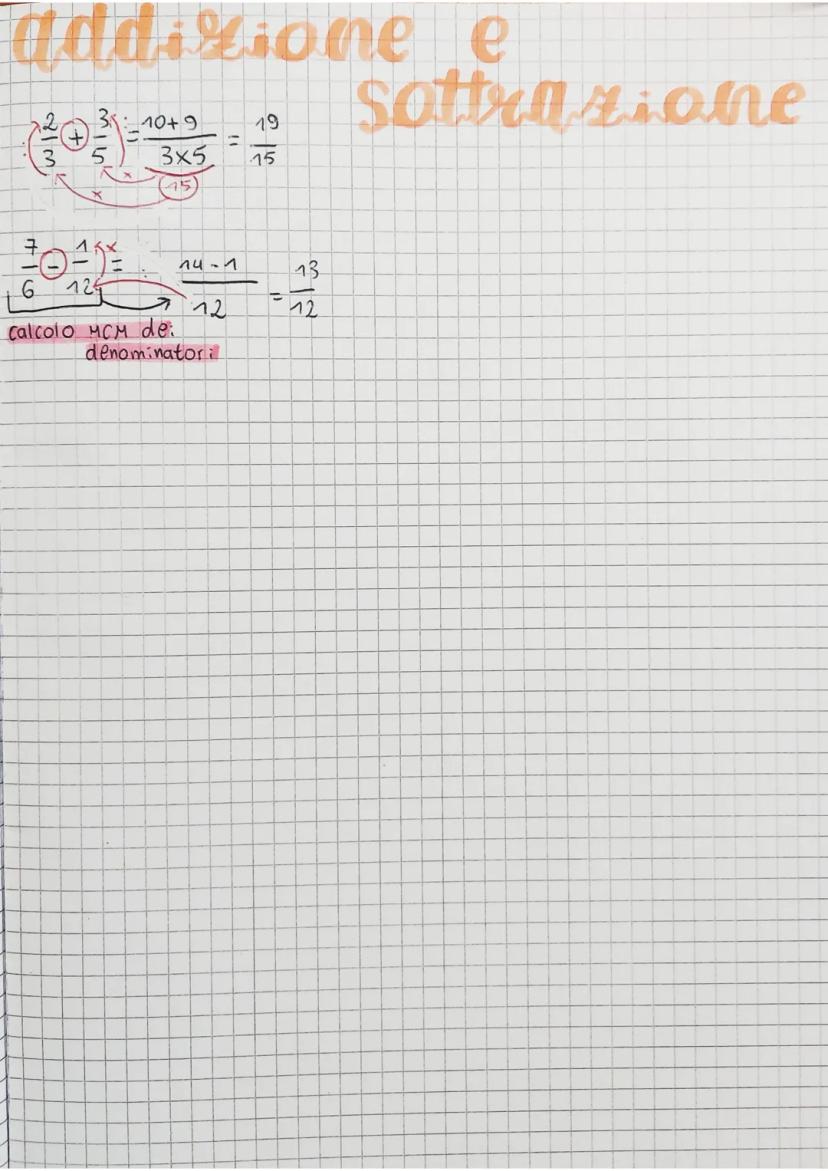 addizione e
sottrazione
2/3 + 3/5 = 10+9 / 3×5 = 19/15
: : × × 15
7/6 - 1/12 = 14-1 / 12 = 13/12
: ×
calcolo MCM dei
denominatori